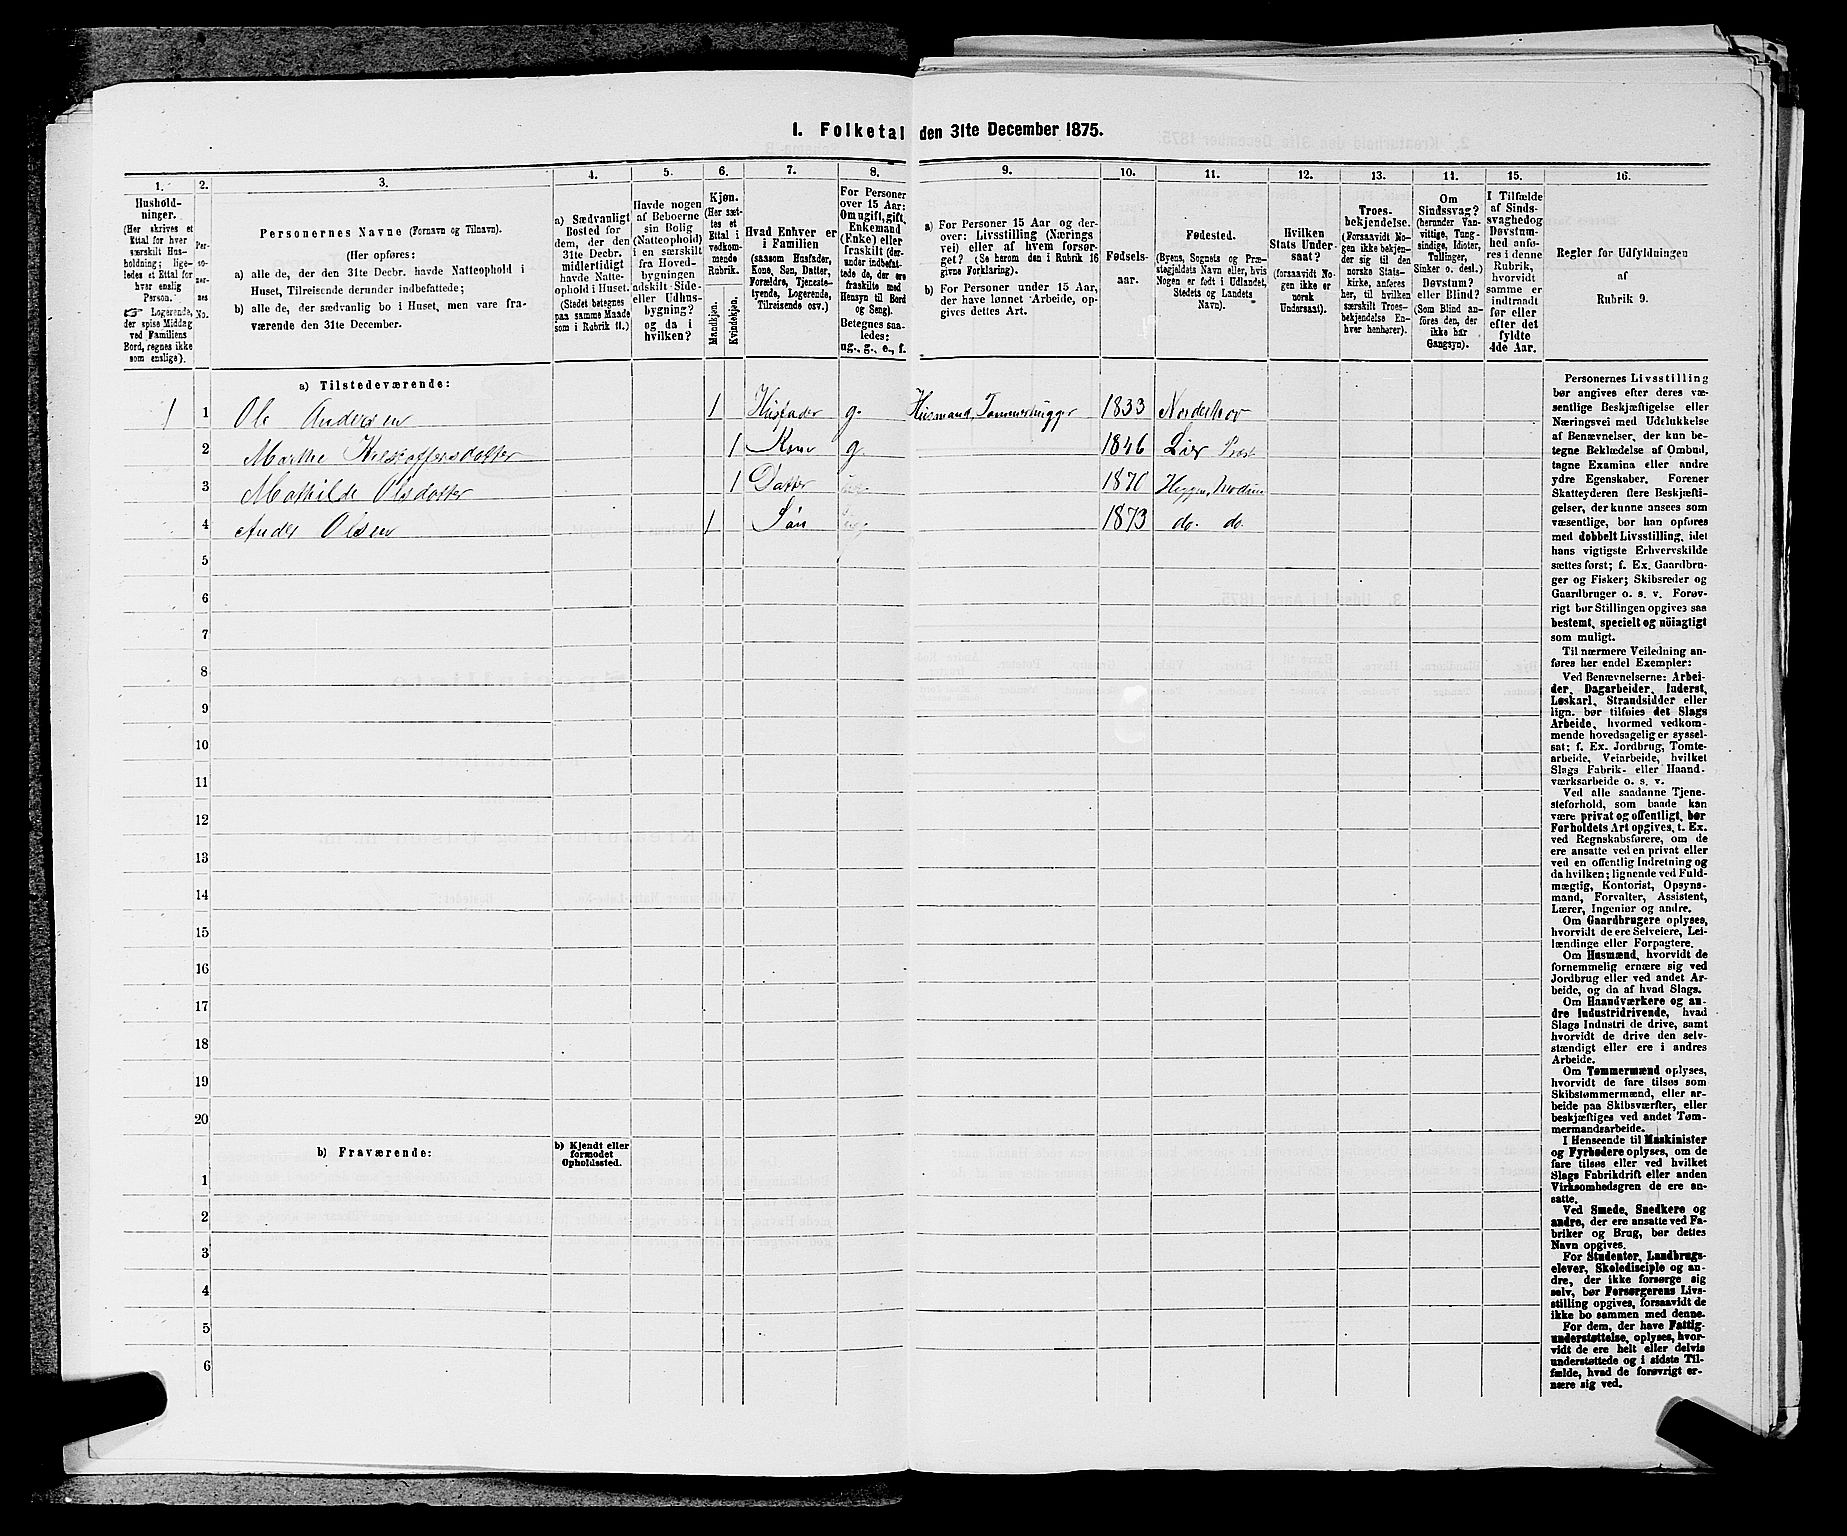 I. Folketal den 31te December 1875.
1. 2. 3. 4. 5. 6. 7. 8. 9. 10. 11. 12. 13. 14. 15. 16.
Hushold-
ninger.
(Her skrives et
Ettal for hver
særskilt Hus-
holdning; lige-
ledes et Ettal for
hver enslig
Person.
☞ Logerende,
der spise Middag
ved Familiens
Bord, regnes ikke
som enslige).
Per-
so-
ner-
nes
No.
Personernes Navne (Fornavn og Tilnavn).
(Her opføres:
a) alle de, der den 31te Decbr. havde Natteophold i
Huset, Tilreisende derunder indbefattede;
b) alle de, der sædvanlig bo i Huset, men vare fra-
værende den 31te December.
a) Sædvanligt
Bosted for
dem, der den
31te Decbr.
midlertidigt
havde Natte-
ophold i Huset.
(Stedet betegnes
paa samme Maade
som i Rubrik 11.)
Havde nogen
af Beboerne
sin Bolig
(Natteophold)
i en særskilt
fra Hoved-
bygningen
adskilt Side-
eller Udhus-
bygning?
og da i
hvilken?
Kjøn.
(Her sæt-
tes et
Ettal i
vedkom-
mende
Rubrik.
Mandkjøn.
Kvindekjøn.
Hvad Enhver er
i Familien
(saasom Husfader,
Kone, Søn, Datter,
Forældre, Tjeneste-
tyende, Logerende,
Tilreisende osv.)
For Personer
over 15 Aar:
Om ugift, gift,
Enkemand
(Enke) eller
fraskilt (der-
under indbefat-
tede de, der ere
fraskilte med
Hensyn til Bord
og Seng).
Betegnes saa-
ledes:
ug., g., e., f.
a) For Personer 15 Aar og der-
over: Livsstilling (Nærings-
vei) eller af hvem forsør-
get? (Se herom den i Rubrik 16
givne Forklaring).
b) For Personer under 15 Aar,
der have lønnet Arbeide, op-
gives dettes Art.
Fødsels-
aar.
Fødested.
(Byens, Sognets og Præ-
stegjeldets Navn eller, hvis
Nogen er født i Udlandet,
Stedets og Landets
Navn).
Hvilken
Stats Under-
saat?
(forsaavidt No-
gen ikke er
norsk
Undersaat).
Troes-
bekjendelse.
(Forsaavidt No-
gen ikke bekjen-
der sig til den
norske Stats-
kirke, anføres
her, til hvilken
særskilt Troes-
bekjendelse En-
hver henhører).
Om
Sindssvag?
(herunder Van-
vittige, Tung-
sindige, Idioter,
Tullinger,
Sinker o. desl.)
Døvstum?
eller Blind?
(Som Blind an-
føres den, der
ikke har
Gangsyn).
I Tilfælde
af Sinds-
svaghed og
Døvstum-
hed anfø-
res i denne
Rubrik,
hvorvidt
samme er
indtraadt
før eller
efter det
fyldte
4de Aar.
Regler for Udfyldningen
af
Rubrik 9.
a) Tilstedeværende:
1 1 Ole Andersen 1 Husfader g. Husmand, Tømmerhugger 1833 Norderhov
2 Marthe 1 Kone g 1846 Lier
3 Mathilde Olsdatter 1 Datter 1870 Modum
4 Anders Olsen 1 Søn 1873 do. do.
5
6
7
8
9
10
11
12
13
14
15
16
17
18
19
20
b) Fraværende:
b) Kjendt eller
formodet
Opholdssted.
1
2
3
4
5
6
Personernes Livsstilling
bør angives efter deres væ-
sentlige Beskjæftigelse eller
Næringsvei med Udelukkelse
af Benævnelser, der kun be-
tegne Beklædelse af Ombud,
tagne Examina eller andre
ydre Egenskaber. Forener
Skatteyderen flere Beskjæfti-
gelser, der kunne ansees som
væsentlige, bør han opføres
med dobbelt Livsstilling, idet
hans vigtigste Erhvervskilde
sættes først; f. Ex. Gaardbru-
ger og Fisker; Skibsreder og
Gaardbruger o. s. v. Forøv-
rigt bør Stillingen opgives saa
bestemt, specielt og nöiagtigt
som muligt.
Til nærmere Veiledning an-
føres her endel Exempler:
Ved Benævnelserne: Arbei-
der, Dagarbeider, Inderst,
Løskarl, Strandsidder eller
lign. bør tilføies det Slags
Arbeide, hvormed vedkom-
mende hovedsagelig er syssel-
sat; f. Ex. Jordbrug, Tomte-
arbeide, Veiarbeide, hvilket
Slags Fabrik- eller Haand-
værksarbeide o. s. v.
Ved alle saadanne Tjene-
steforhold, som baade kan
være privat og offentligt, bør
Forholdets Art opgives, t. Ex.
ved Regnskabsførere, om de
ere ansatte ved en privat eller
ved en offentlig Indretning og
da hvilken; lignende ved Fuld-
mægtig, Kontorist, Opsyns-
mand, Forvalter, Assistent,
Lærer, Ingeniør og andre.
Om Gaardbrugere oplyses,
hvorvidt de ere Selveiere, Lei-
lændinge eller Forpagtere.
Om Husmænd, hvorvidt de
fornemmelig ernære sig ved
Jordbrug eller ved andet Ar-
beide, og da af hvad Slags.
Om Haandværkere og an-
dre Industridrivende, hvad
Slags Industri de drive, samt
hvorvidt de drive den selv-
stændigt eller ere i andres
Arbeide.
Om Tømmermænd oplyses,
hvorvidt de fare tilsøs som
Skibstømmermænd, eller ar-
beide paa Skibsværfter, eller
beskjæftiges ved andet Tøm-
mermandsarbeide.
I Henseende til Maskinister
og Fyrbødere oplyses, om de
fare tilsøs eller ved hvilket
Slags Fabrikdrift eller anden
Virksomhedsgren de ere an-
satte.
Ved Smede, Snedkere og
andre, der ere ansatte ved Fa-
briker og Brug, bør dettes
Navn opgives.
For Studenter, Landbrugs-
elever, Skoledisciple og an-
dre, der ikke forsørge sig
selv, bør Forsørgerens Livs-
stilling opgives, forsaavidt de
ikke bo sammen med denne.
For dem, der have Fattig-
understøttelse, oplyses, hvor-
vidt de ere helt eller delvis
understøttede og i sidste Til-
fælde, hvad de forøvrigt er-
nære sig ved.